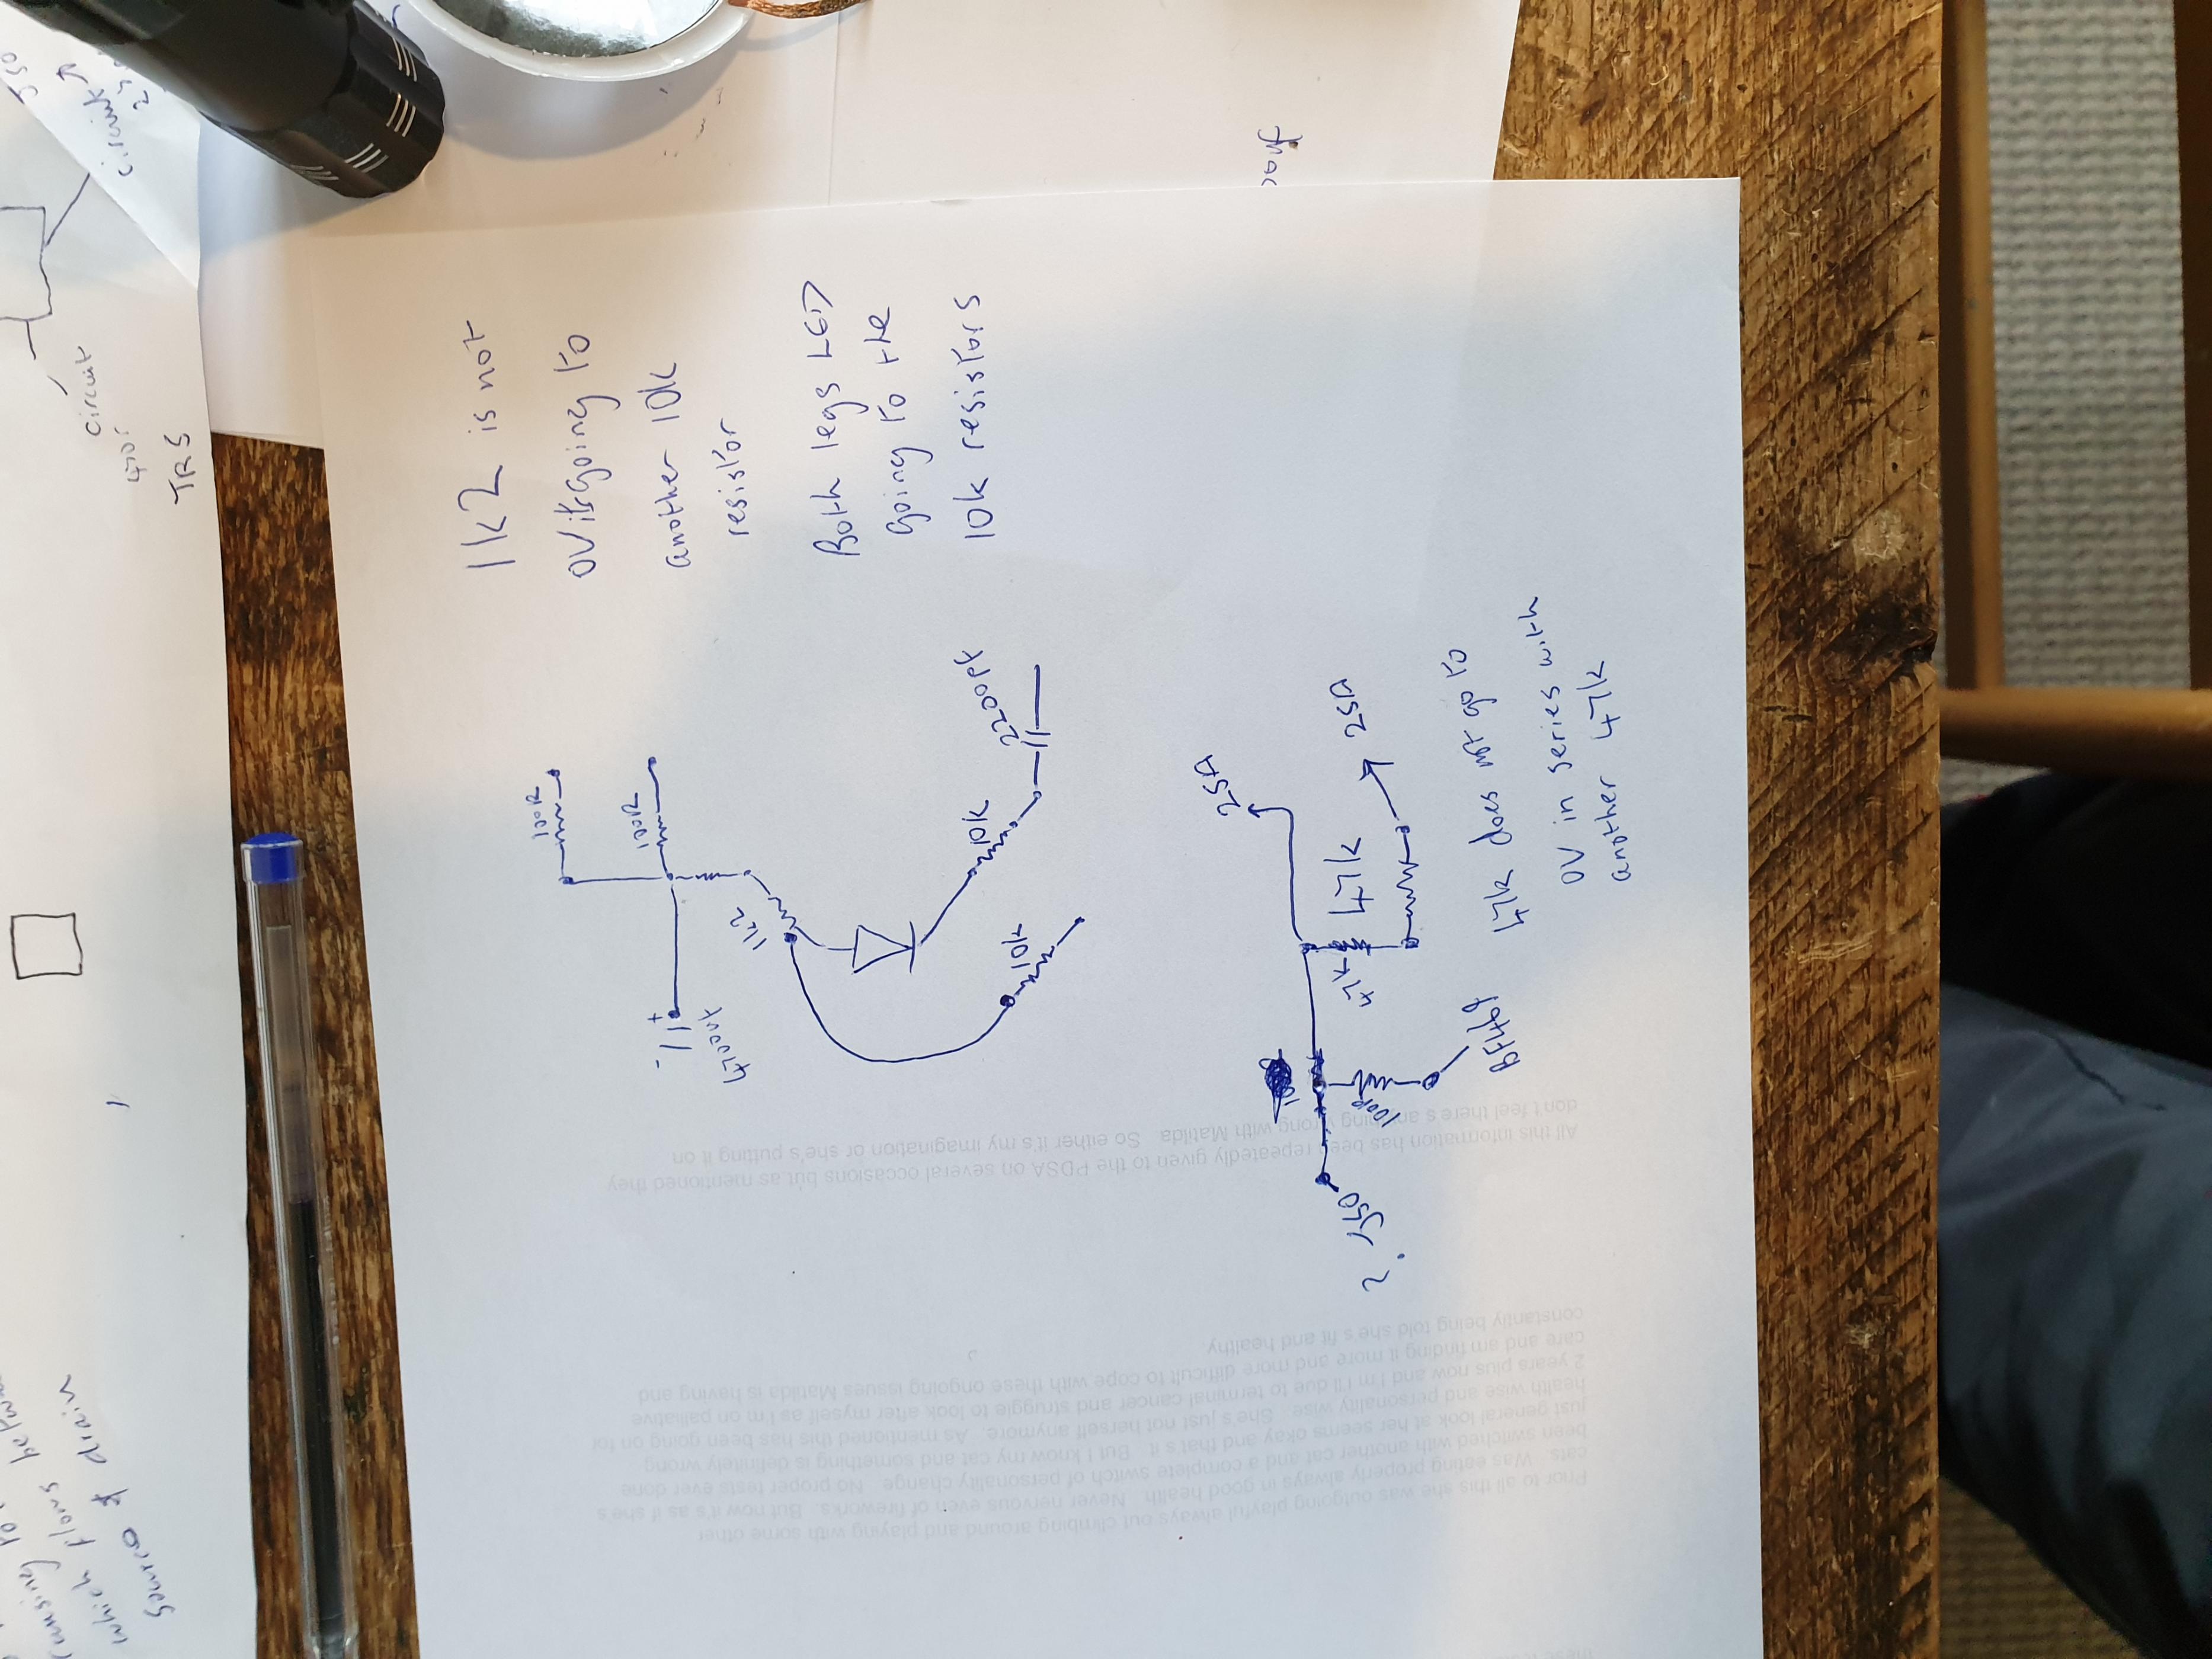 1k2 is not
0V its going to
another 10k
resistor
Both legs LED
going to the
10k resistors
100R
100R
- +
4700uf
1k2
10k
2200pf
10k
2SA
2SA
47k
47k
100R
BF469
? J50
47k does not go to
0V in series with
another 47k
J50
circuit
circuit
TRS
which flows
source & drain
All this information has been repeatedly given to the PDSA on several occasions but as mentioned they
don't feel there's anything wrong with Matilda. So either it's my imagination or she's putting it on
Prior to all this she was outgoing playful always out climbing around and playing with some other
cats. Was eating properly always in good health. Never nervous even of fireworks. But now it's as if she's
been switched with another cat and a complete switch of personality change. No proper tests ever done
just general look at her seems okay and that's it. But I know my cat and something is definitely wrong
health wise and personality wise. She's just not herself anymore. As mentioned this has been going on for
2 years plus now and I'm ill due to terminal cancer and struggle to look after myself as I'm on palliative
care and am finding it more and more difficult to cope with these ongoing issues Matilda is having and
constantly being told she's fit and healthy